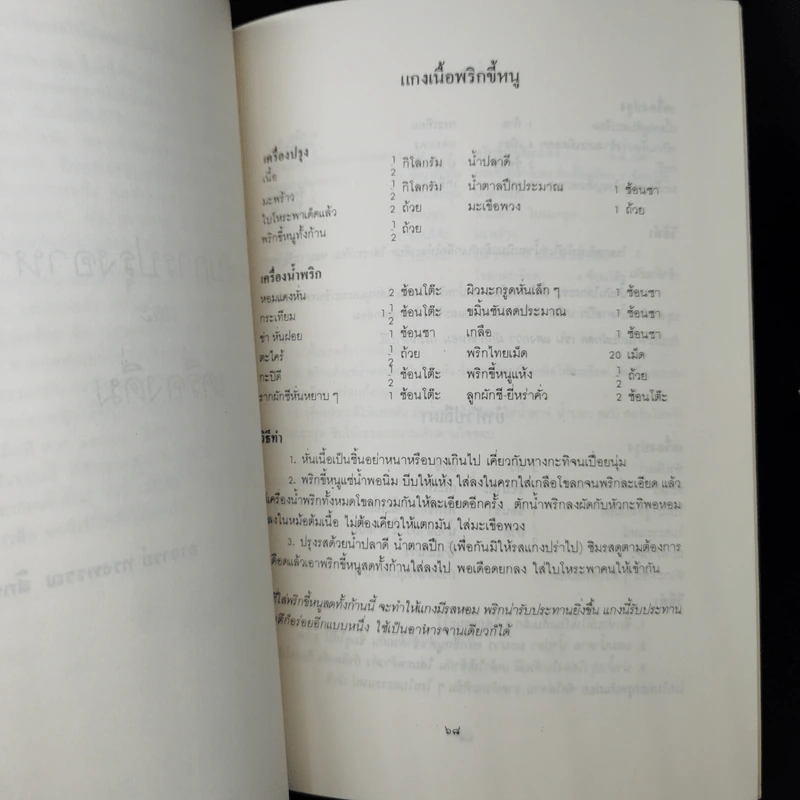 แกงเนื้อพริกขี้หนู
เครื่องปรุง
เนื้อ 1/2 กิโลกรัม น้ำปลาดี
มะพร้าว 1/2 กิโลกรัม น้ำตาลปึกประมาณ 1 ช้อนชา
ใบโหระพาเด็ดแล้ว 2 ถ้วย มะเขือพวง 1 ถ้วย
พริกขี้หนูทั้งก้าน 1/2 ถ้วย
เครื่องน้ำพริก
หอมแดงหั่น 2 ช้อนโต๊ะ ผิวมะกรูดหั่นเล็ก ๆ 1 ช้อนชา
กระเทียม 1-1/2 ช้อนโต๊ะ ขมิ้นชันสดประมาณ 1 ช้อนชา
ข่า หั่นฝอย 1 ช้อนชา เกลือ 1 ช้อนชา
ตะไคร้ 1/2 ถ้วย พริกไทยเม็ด 20 เม็ด
กะปิดี 1/2 ช้อนโต๊ะ พริกขี้หนูแห้ง 1/2 ถ้วย
รากผักชีหั่นหยาบ ๆ 1 ช้อนโต๊ะ ลูกผักชี-ยี่หร่าคั่ว 2 ช้อนโต๊ะ
วิธีทำ
1. หั่นเนื้อเป็นชิ้นอย่าหนาหรือบางเกินไป เคี่ยวกับหางกะทิจนเปื่อยนุ่ม
2. พริกขี้หนูแช่น้ำพอนิ่ม บีบให้แห้ง ใส่ลงในครกใส่เกลือโขลกจนพริกละเอียด แล้ว
ใส่เครื่องน้ำพริกทั้งหมดโขลกรวมกันให้ละเอียดอีกครั้ง ตักน้ำพริกลงผัดกับหัวกะทิพอหอม
ลงในหม้อต้มเนื้อ ไม่ต้องเคี่ยวให้แตกมัน ใส่มะเขือพวง
3. ปรุงรสด้วยน้ำปลาดี น้ำตาลปึก (เพื่อกันมิให้รสแกงปร่าไป) ชิมรสดูตามต้องการ
เดือดแล้วเอาพริกขี้หนูสดทั้งก้านใส่ลงไป พอเดือดยกลง ใส่ใบโหระพาคนให้เข้ากัน
ใส่พริกขี้หนูสดทั้งก้านนี้ จะทำให้แกงมีรสหอม พริกน่ารับประทานยิ่งขึ้น แกงนี้รับประทาน
ดีก็อร่อยอีกแบบหนึ่ง ใช้เป็นอาหารจานเดียวก็ได้
๖๘